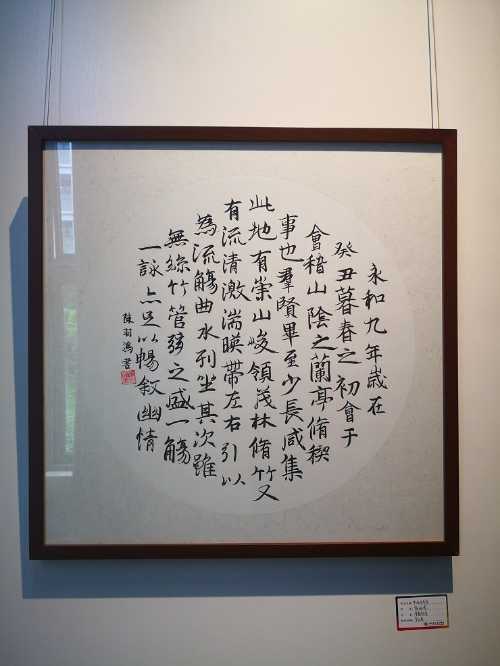 永和九年歲在
癸丑暮春之初會于
會稽山陰之蘭亭脩稧
事也羣賢畢至少長咸集
此地有崇山峻領茂林脩竹又
有流清激湍暎帶左右引以
為流觴曲水列坐其次雖
無絲竹管弦之盛一觴
一詠亦足以暢敘幽情